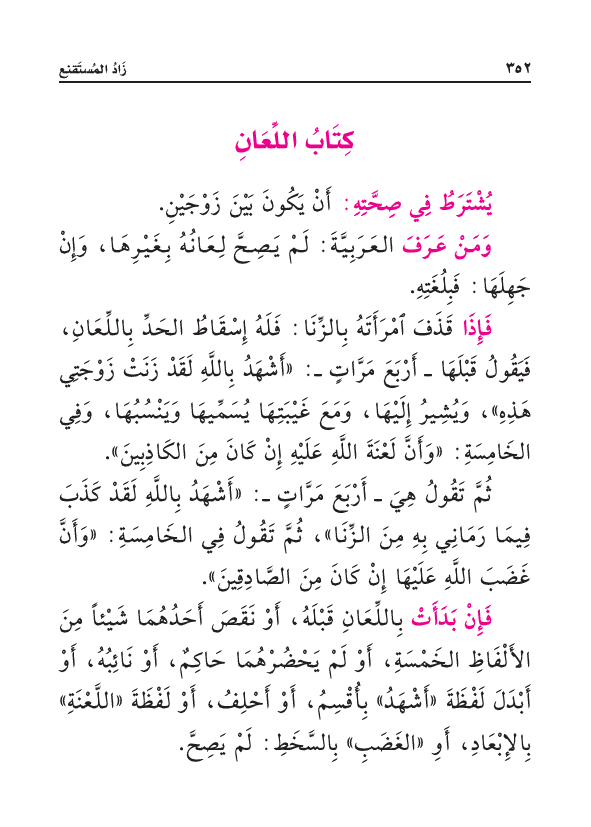 زَادُ المُستَقنِع
٣٥٢
كِتَابُ اللِّعَانِ
يُشْتَرَطُ فِي صِحَّتِهِ: أَنْ يَكُونَ بَيْنَ زَوْجَيْنِ.
وَمَنْ عَرَفَ العَرَبِيَّةَ: لَمْ يَصِحَّ لِعَانُهُ بِغَيْرِهَا، وَإِنْ
جَهِلَهَا: فَبِلُغَتِهِ.
فَإِذَا قَذَفَ ٱمْرَأَتَهُ بِالزِّنَا: فَلَهُ إِسْقَاطُ الحَدِّ بِاللِّعَانِ،
فَيَقُولُ قَبْلَهَا ـ أَرْبَعَ مَرَّاتٍ ـ: «أَشْهَدُ بِاللَّهِ لَقَدْ زَنَتْ زَوْجَتِي
هَذِهِ»، وَيُشِيرُ إِلَيْهَا، وَمَعَ غَيْبَتِهَا يُسَمِّيهَا وَيَنْسُبُهَا، وَفِي
الخَامِسَةِ: «وَأَنَّ لَعْنَةَ اللَّهِ عَلَيْهِ إِنْ كَانَ مِنَ الكَاذِبِينَ».
ثُمَّ تَقُولُ هِيَ ـ أَرْبَعَ مَرَّاتٍ ـ: «أَشْهَدُ بِاللَّهِ لَقَدْ كَذَبَ
فِيمَا رَمَانِي بِهِ مِنَ الزِّنَا»، ثُمَّ تَقُولُ فِي الخَامِسَةِ: «وَأَنَّ
غَضَبَ اللَّهِ عَلَيْهَا إِنْ كَانَ مِنَ الصَّادِقِينَ».
فَإِنْ بَدَأَتْ بِاللِّعَانِ قَبْلَهُ، أَوْ نَقَصَ أَحَدُهُمَا شَيْئاً مِنَ
الأَلْفَاظِ الخَمْسَةِ، أَوْ لَمْ يَحْضُرْهُمَا حَاكِمٌ، أَوْ نَائِبُهُ، أَوْ
أَبْدَلَ لَفْظَةَ «أَشْهَدُ» بِأُقْسِمُ، أَوْ أَحْلِفُ، أَوْ لَفْظَةَ «اللَّعْنَةِ»
بِالإِبْعَادِ، أَوِ «الغَضَبِ» بِالسَّخَطِ: لَمْ يَصِحَّ.